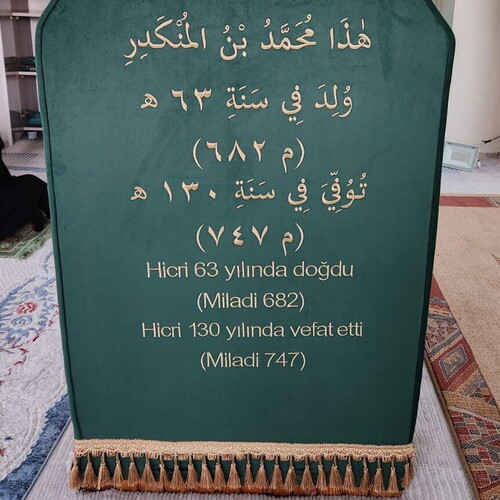 هٰذَا مُحَمَّدُ بْنُ المُنْكَدِرِ
وُلِدَ فِي سَنَةِ ٦٣ هـ
(٦٨٢ م)
تُوُفِّيَ فِي سَنَةِ ١٣٠ هـ
(٧٤٧ م)
Hicri 63 yılında doğdu
(Miladi 682)
Hicri 130 yılında vefat etti
(Miladi 747)